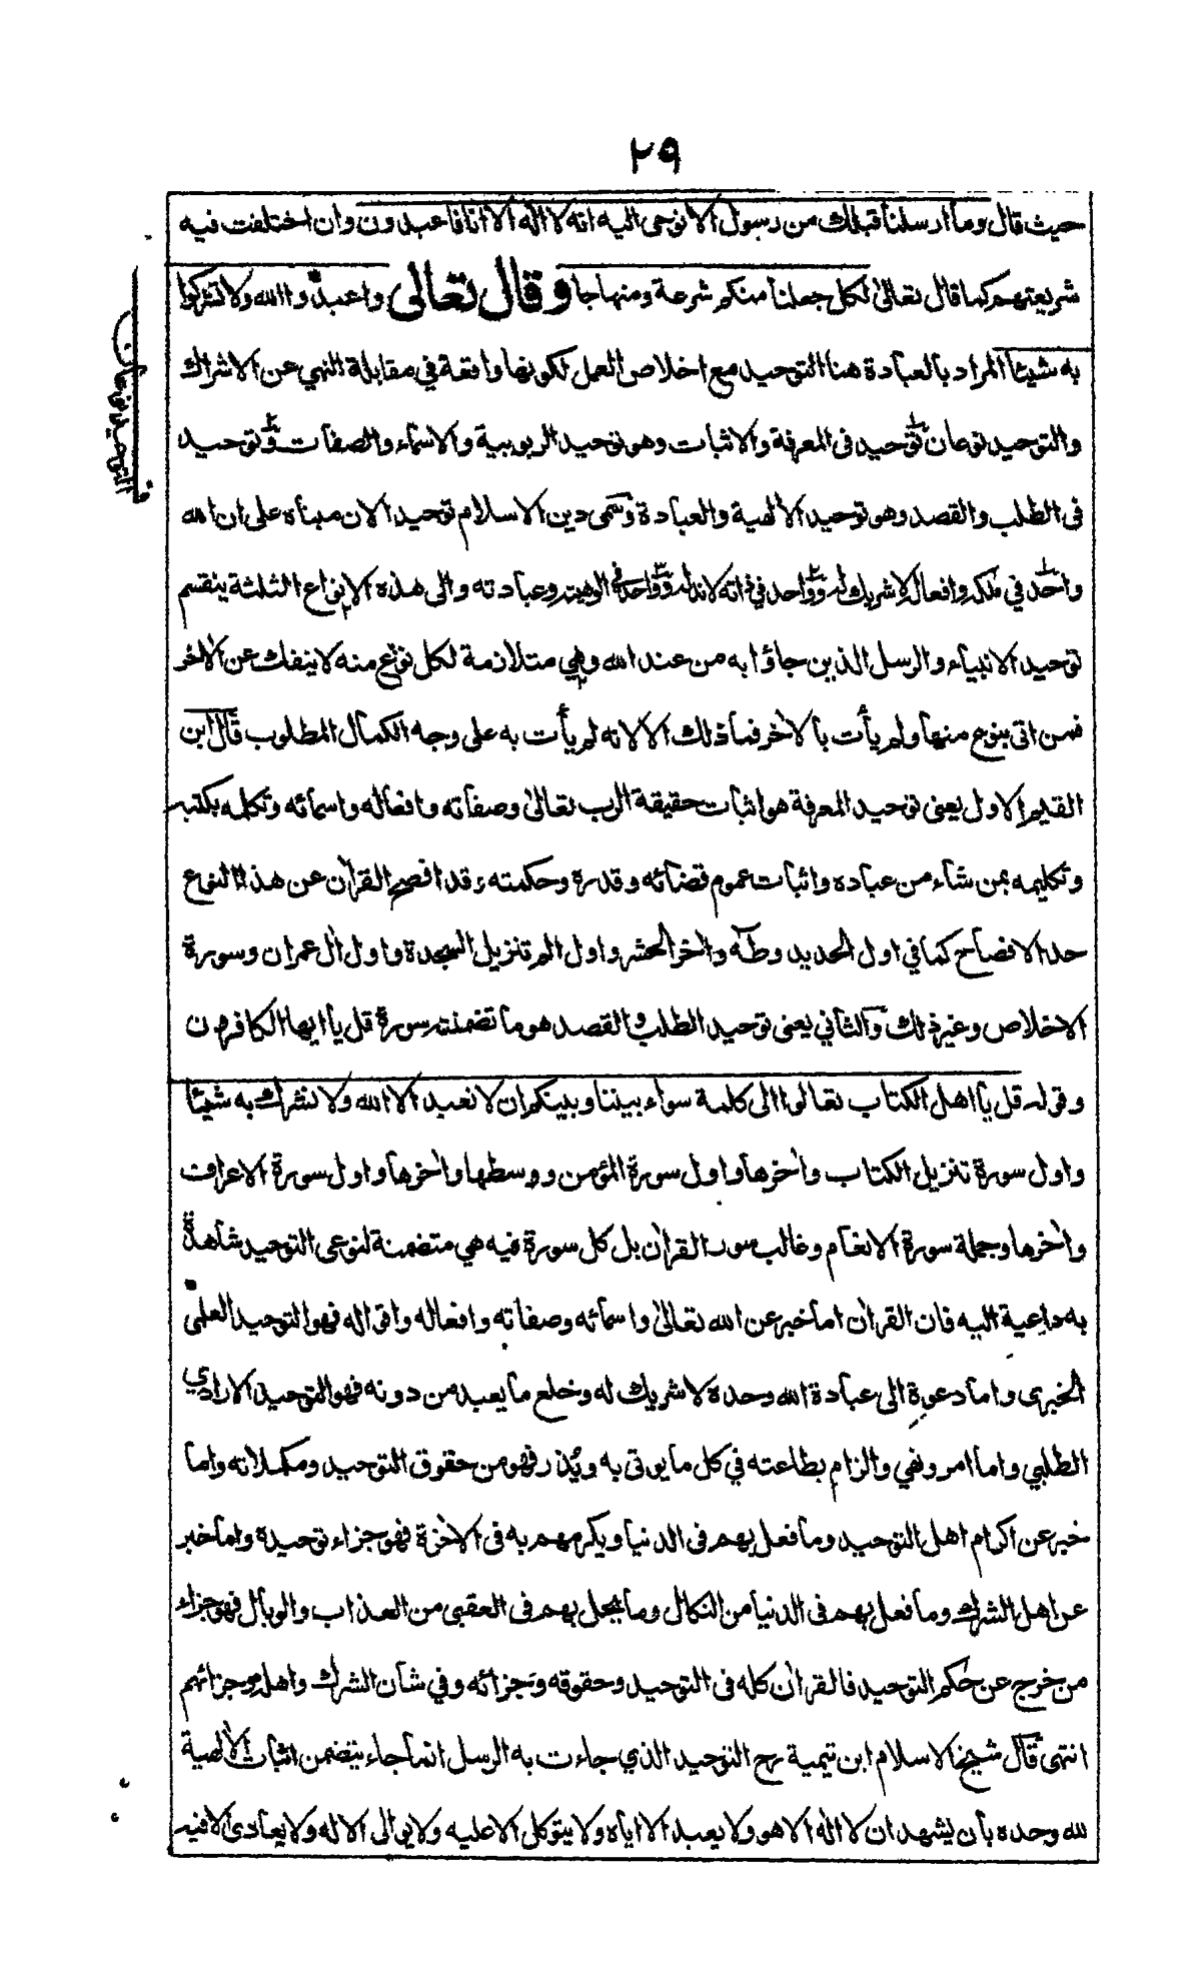 ٢٩
حيث قال وما ارسلنا قبلك من رسول الا نوحى اليه انه لا اله الا انا فاعبدون وان اختلفت فيه
شريعتهم كما قال تعالى لكل جعلنا منكم شرعة ومنهاجا وقال تعالى واعبدوا الله ولا تشركوا
به شيئا المراد بالعبادة هنا التوحيد مع اخلاص العمل لكونها واقعة في مقابلة النهي عن الاشراك
والتوحيد نوعان توحيد فى المعرفة والاثبات وهو توحيد الربوبية والاسماء والصفات وتوحيد
فى الطلب والقصد وهو توحيد الألهية والعبادة وسمى دين الاسلام توحيد الان مبناه على ان الله
واحد في ملكه وافعاله لا شريك له وواحد في ذاته لا ند له وواحد في الوهيته وعبادته والى هذه الانواع الثلثة ينقسم
توحيد الانبياء والرسل الذين جاؤا به من عند الله وهي متلازمة لكل نوع منه لا ينفك عن الاخر
فمن اتى بنوع منها ولم يأت بالاخر فما ذلك الا لانه لم يأت به على وجه الكمال المطلوب قال ابن
القيم الاول يعنى توحيد المعرفة هو اثبات حقيقة الرب تعالى وصفاته وافعاله واسمائه وتكلمه بكتبه
وتكليمه بمن شاء من عباده واثبات عموم قضائه وقدره وحكمته وقد افصح القران عن هذا النوع
حد الافصاح كما في اول الحديد وطه واخر الحشر واول الم تنزيل السجدة واول ال عمران وسورة
الاخلاص وغير ذلك والثاني يعنى توحيد الطلب والقصد هو ما تضمنته سورة قل يا ايها الكافرون
وقوله قل يا اهل الكتاب تعالوا الى كلمة سواء بيننا وبينكم ان لا نعبد الا الله ولا نشرك به شيئا
واول سورة تنزيل الكتاب واخرها واول سورة المؤمن ووسطها واخرها واول سورة الاعراف
واخرها وجملة سورة الانعام وغالب سور القران بل كل سورة فيه هي متضمنة لنوعى التوحيد شاهدة
به داعية اليه فان القران اما خبر عن الله تعالى واسمائه وصفاته وافعاله واقواله فهو التوحيد العلمى
الخبرى واما دعوة الى عبادة الله وحده لا شريك له وخلع ما يعبد من دونه فهو التوحيد الارادي
الطلبي واما امر ونهي والزام بطاعته في كل ما يوتى به ويذر فهو من حقوق التوحيد ومكملاته واما
خبر عن اكرام اهل التوحيد وما فعل بهم فى الدنيا ويكرمهم به فى الاخرة فهو جزاء توحيده واما خبر
عن اهل الشرك وما فعل بهم فى الدنيا من النكال وما يحل بهم فى العقبى من العذاب والوبال فهو جزاء
من خرج عن حكم التوحيد فالقران كله فى التوحيد وحقوقه وجزائه وفي شان الشرك واهله وجزائهم
انتهى قال شيخ الاسلام ابن تيمية رح التوحيد الذي جاءت به الرسل انما جاء يتضمن اثبات الألهية
لله وحده بان يشهد ان لا اله الا هو ولا يعبد الا اياه ولا يتوكل الا عليه ولا يوالى الا له ولا يعادى الا فيه
ف
التوحيد نوعان